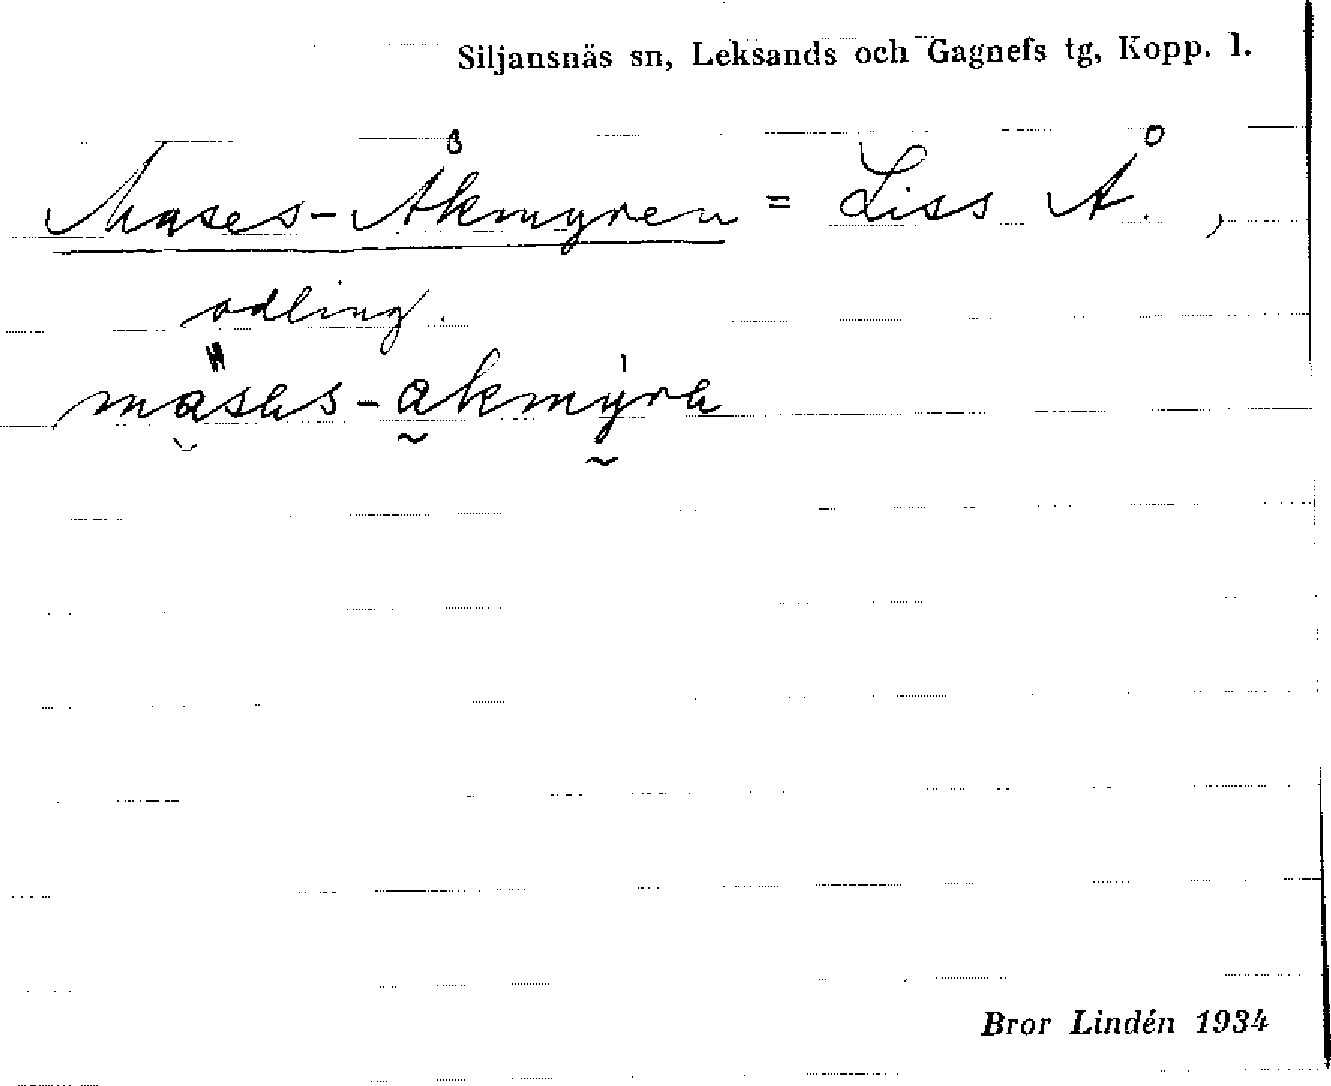 Siljansnäs sn, Leksands och Gagnefs tg, Kopp. l.
Mases-Åkmyren = Liss Å. ,
odling.
Bror Lindén 1934